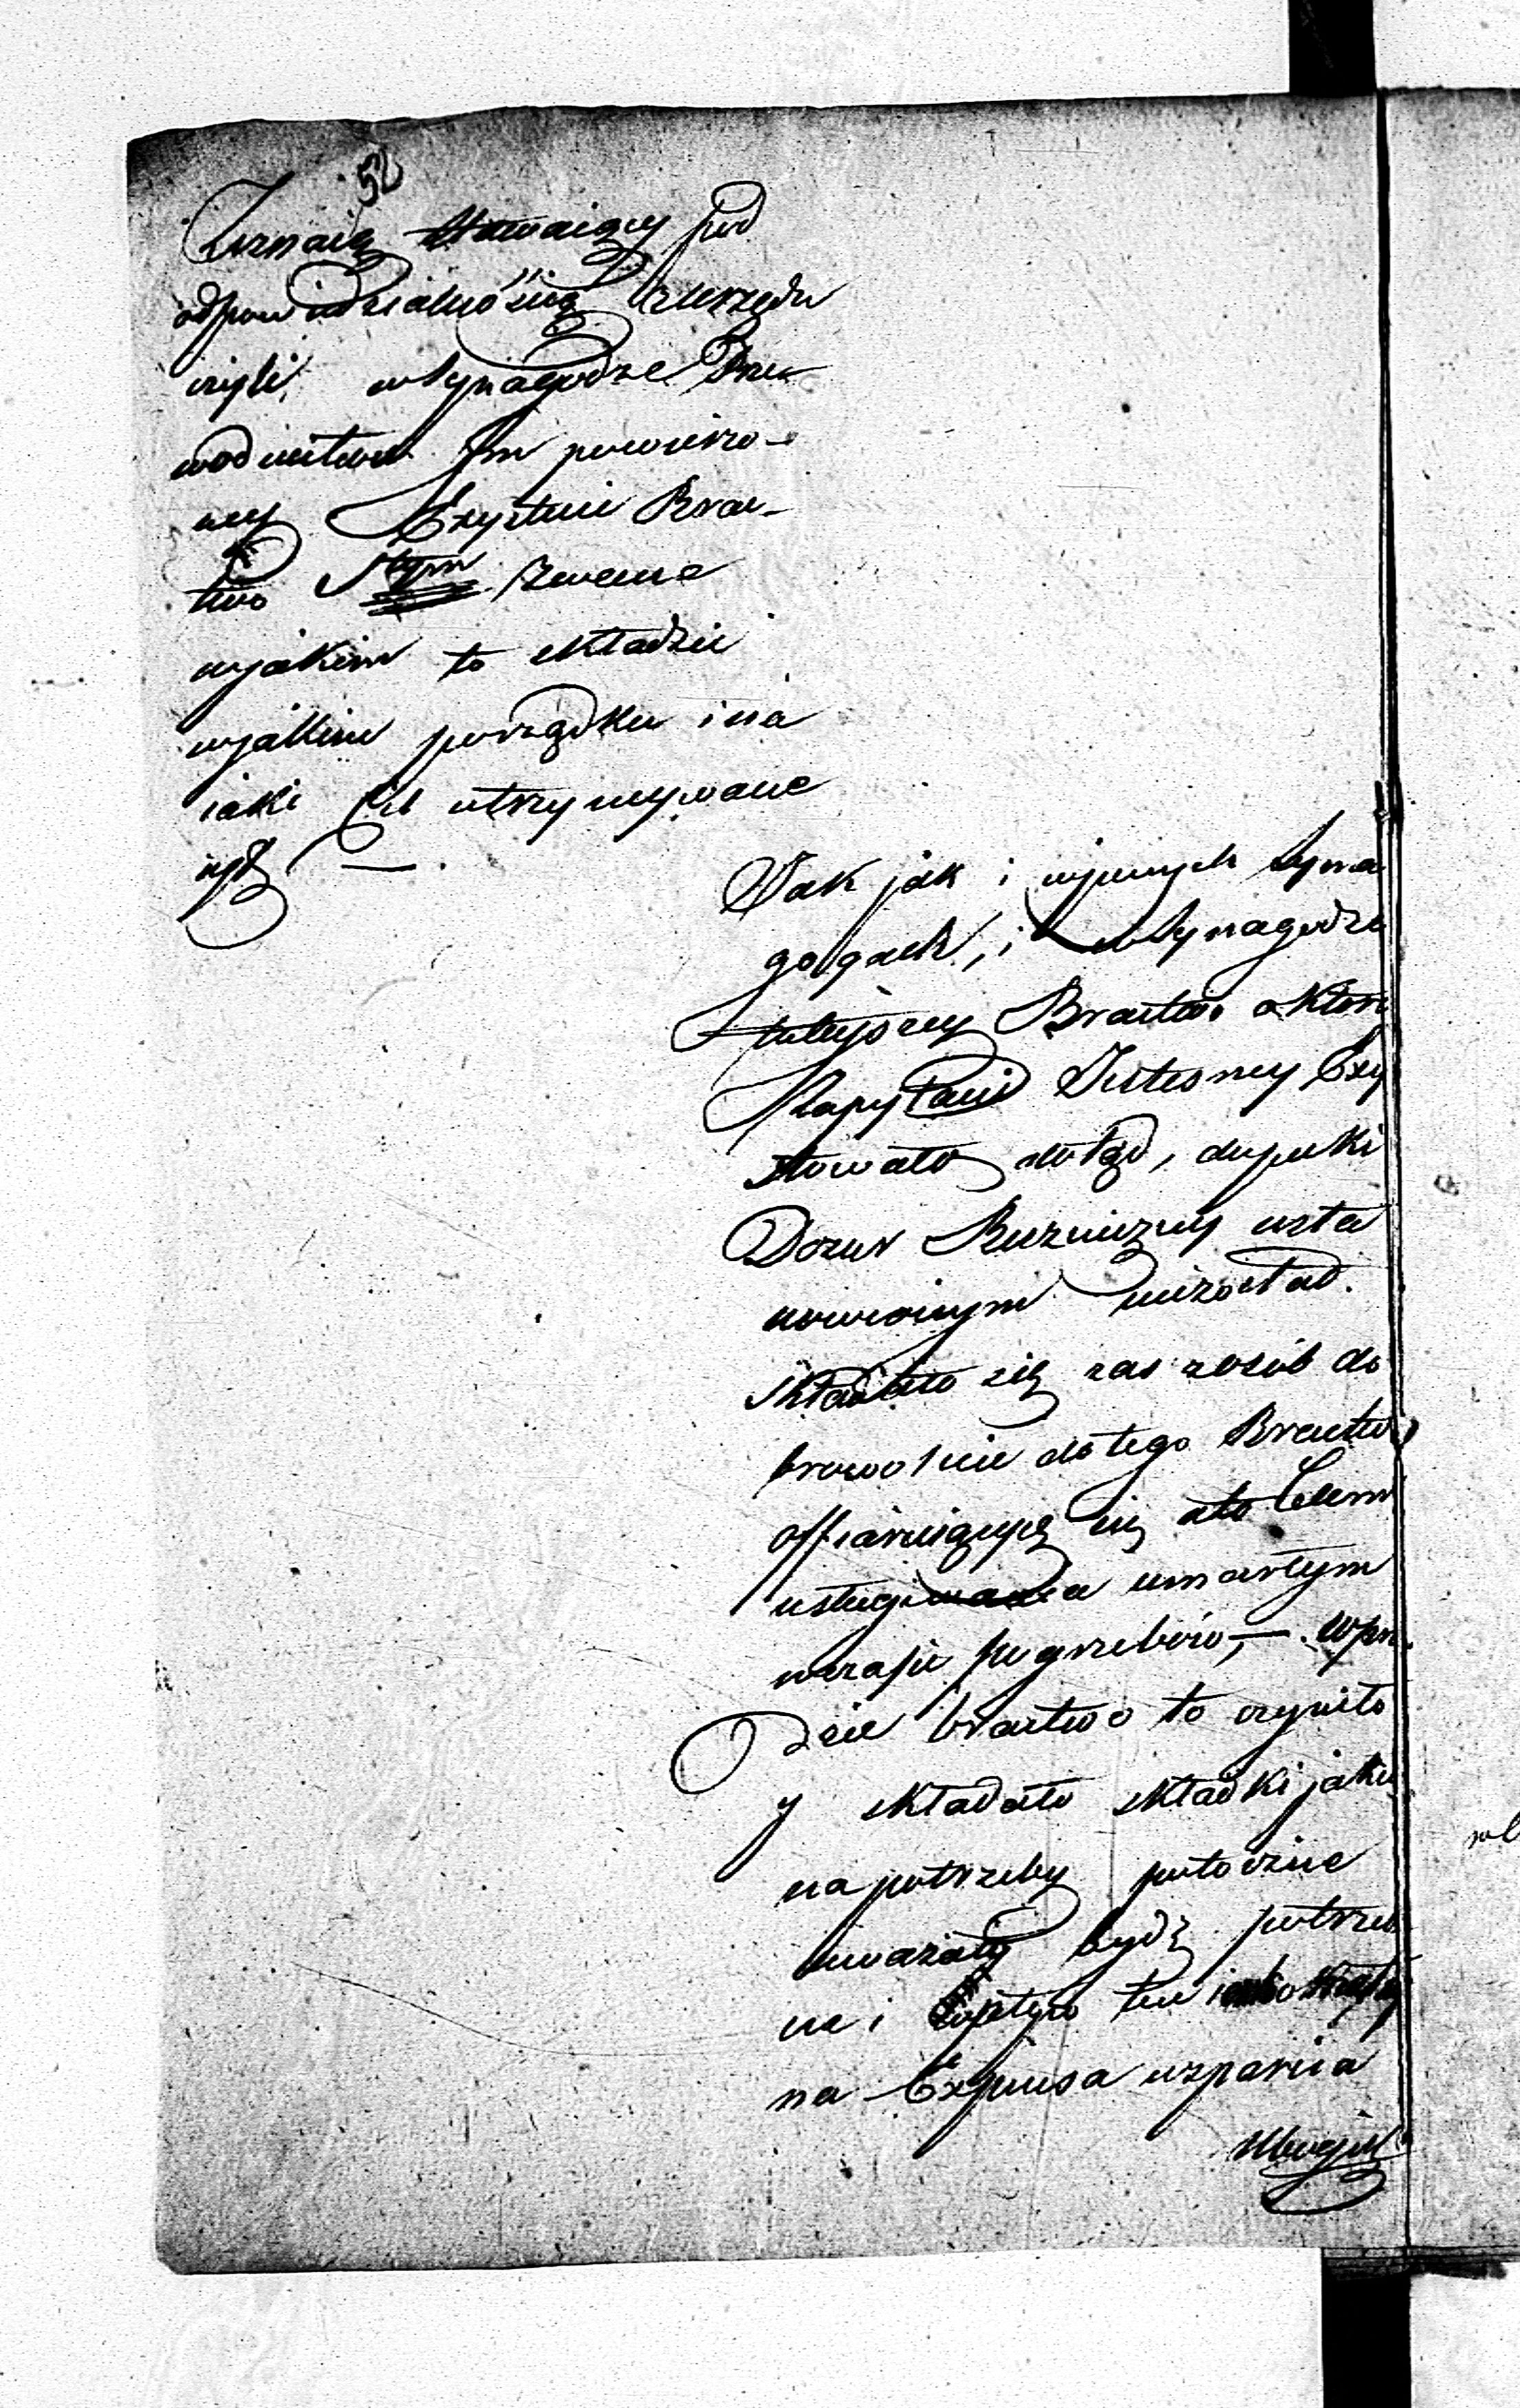 52
Zeznaią stawaiący pod
odpowiedzialnością Urzędu
czyli w Synagodze Prze-
wodnictwu Im powierzo-
ney Exystuie Brac-
two zwane
wjakim to składzie
wjakim porządku i na
iaki Cel utrzymywane
iest —.
Tak jak i winnych Syna
gogach, i w Synagodze
tuteyszey Bractwo o ktore
Zapytanie Istesney Exy
stowało dotąd, dopuki
Dozur Buzniczny usta
nowionym niezostał.
Składało się zas z osób do
browolnie do tego Bractwa
offiaruiących się a to Celem
usługiwania umarłym
w czasie pogrzebów, —. wpra
dzie bractwo to czyniło
y składało składki jakie
na potrzeby potoczne
uwazały bydź potrzeb
ne i
na Expensa wsparcia
Ubogich